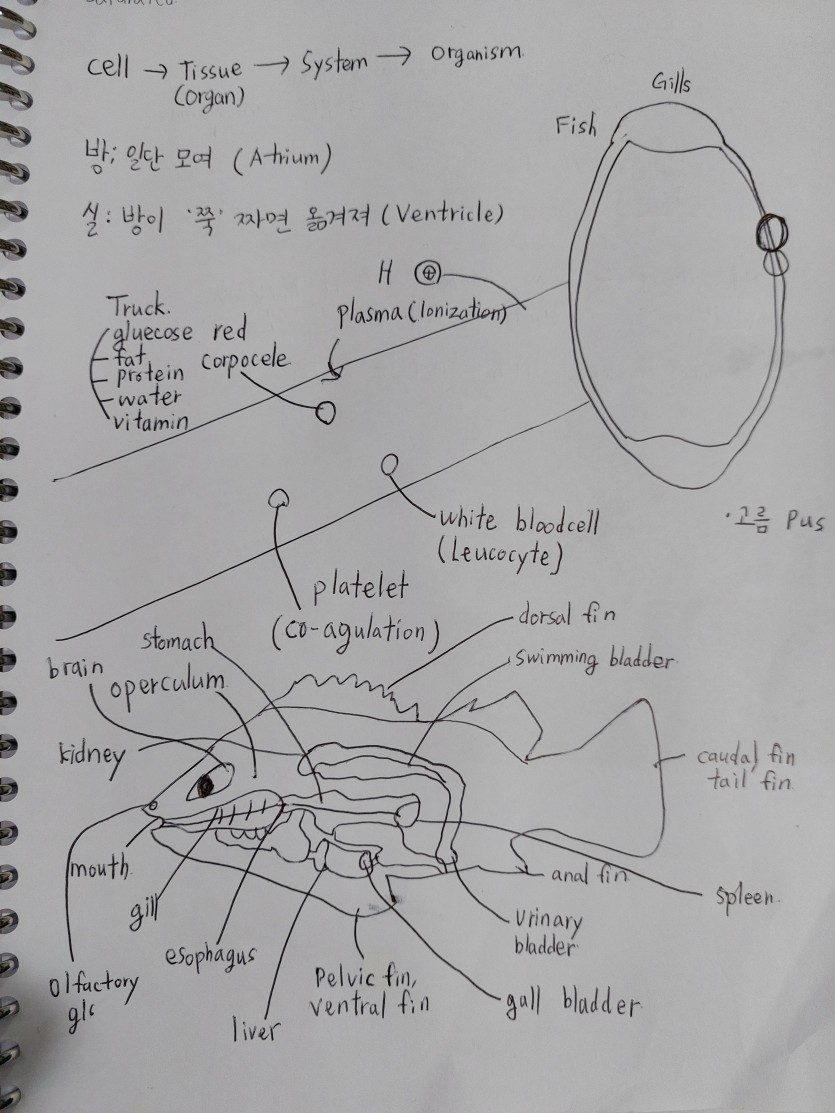 cell → Tissue → System → organism.
(organ)
Gills
Fish
방; 일단 모여 (Atrium)
실: 방이 '쭉' 짜면 옮겨져 (Ventricle)
H ⊕
plasma (Ionization)
Truck.
gluecose
fat
protein
water
vitamin
red
corpocele
white bloodcell
(Leucocyte)
· 고름 Pus
platelet
(co-agulation)
dorsal fin
stomach
swimming bladder
brain
operculum
kidney
caudal fin
tail fin
mouth
anal fin
spleen.
gill
urinary
bladder
esophagus
olfactory
Pelvic fin,
ventral fin
gall bladder
liver